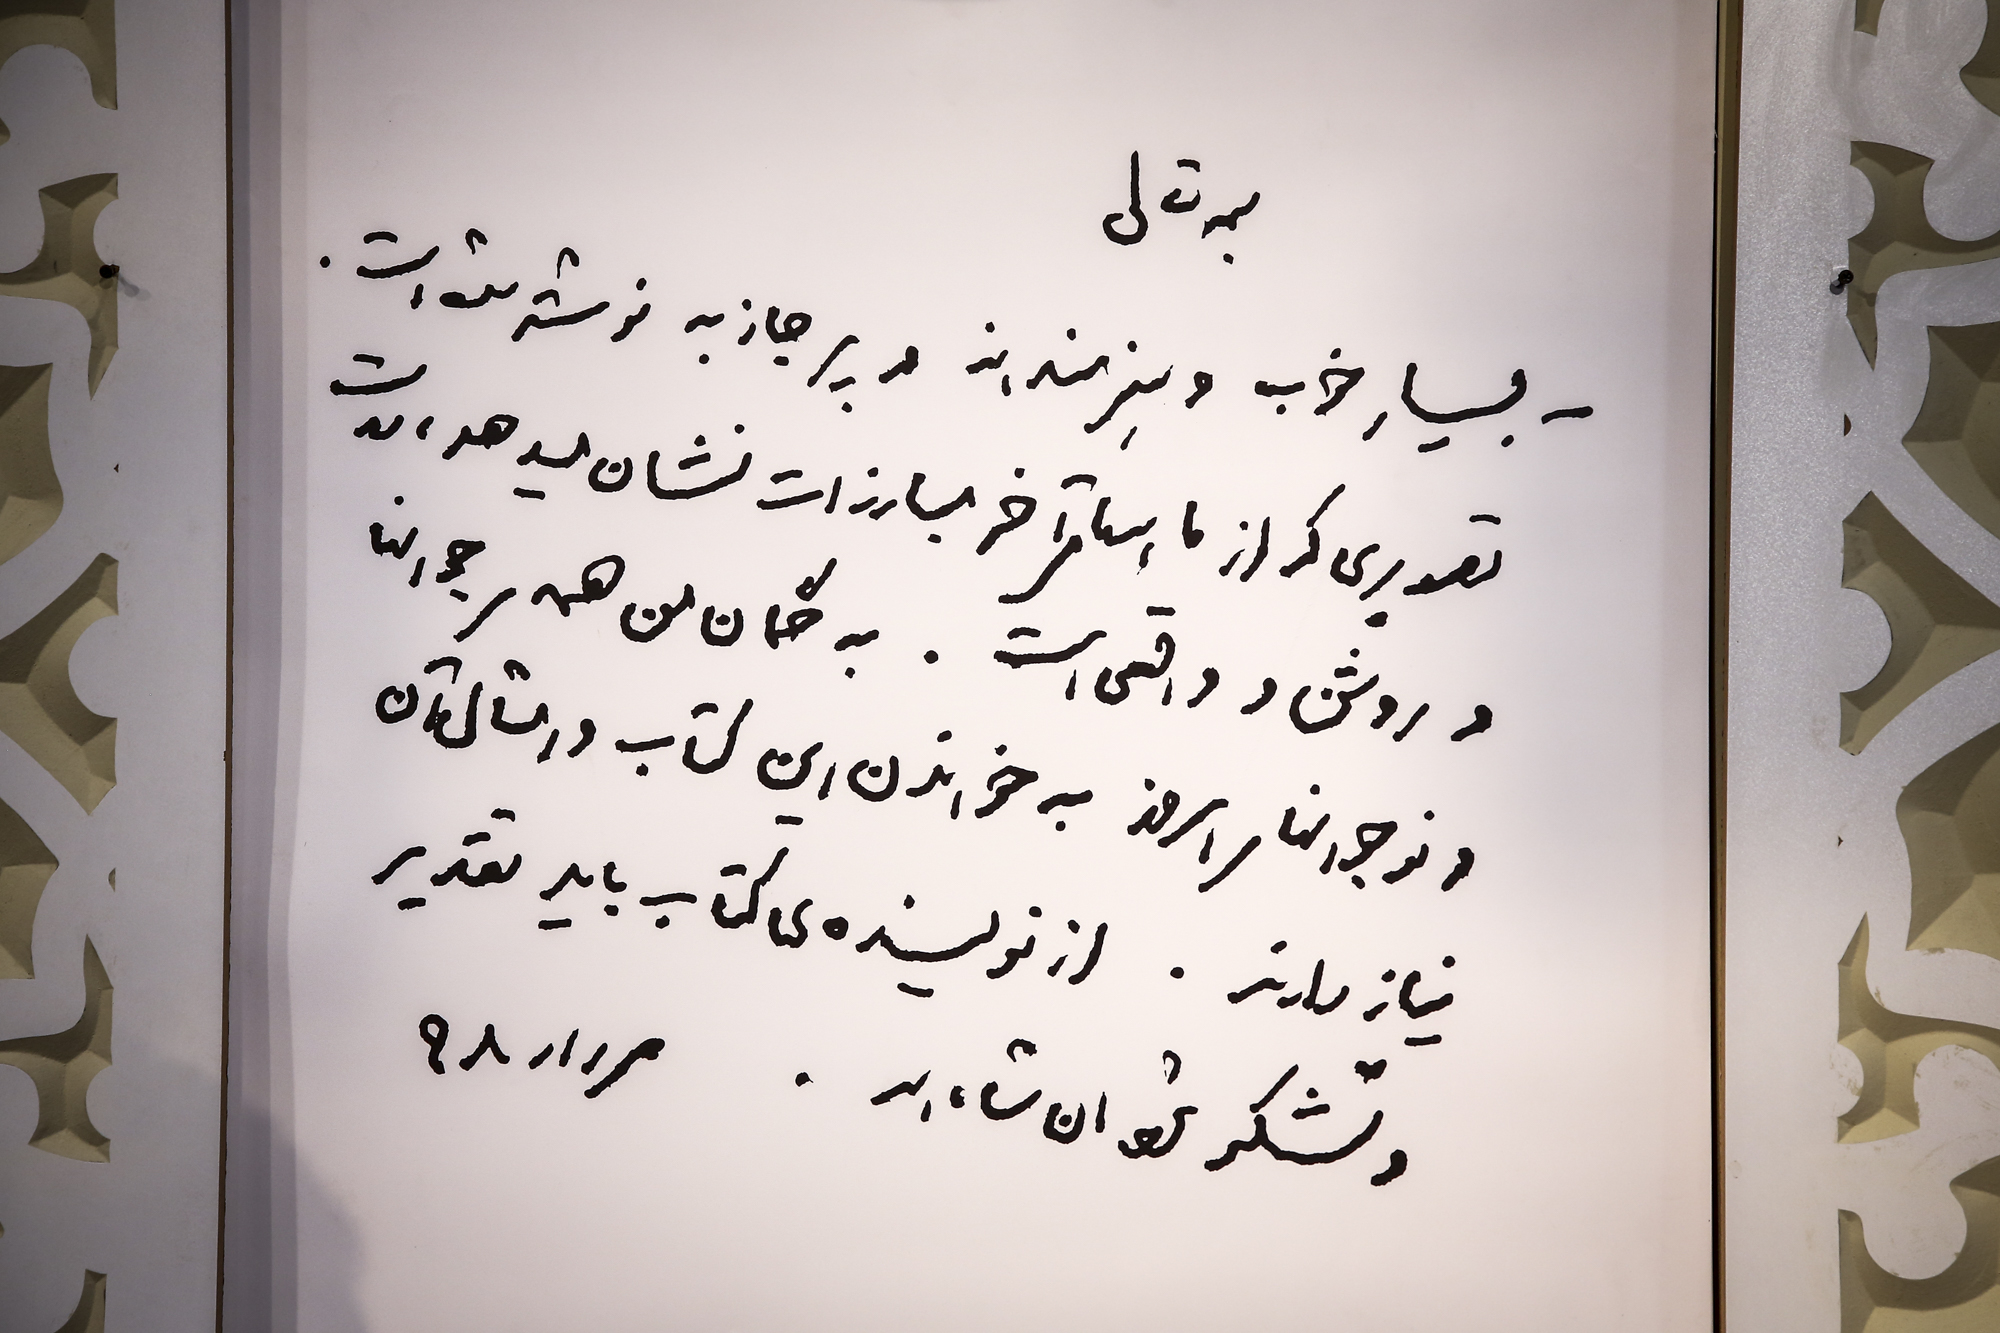 بسمه تعالی
- بسیار خوب و هنرمندانه و پرجاذبه نوشته شده است.
تصویری که از ماههای آخر مبارزات نشان میدهد، درست
و روشن و واقعی است. به گمان من همه‌ی جوانها
و نوجوانهای امروز به خواندن این کتاب و امثال آن
نیاز دارند. از نویسنده‌ی کتاب باید تقدیر
و تشکر شود ان شاءالله. مرداد ۹۸